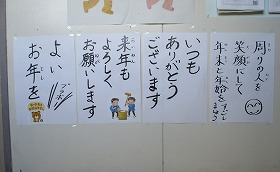 周りの人を
笑顔にして
年末と年始をすごし
ましょう
いつも
ありがとう
ございます
来年も
よろしく
お願いします
よい
お年を